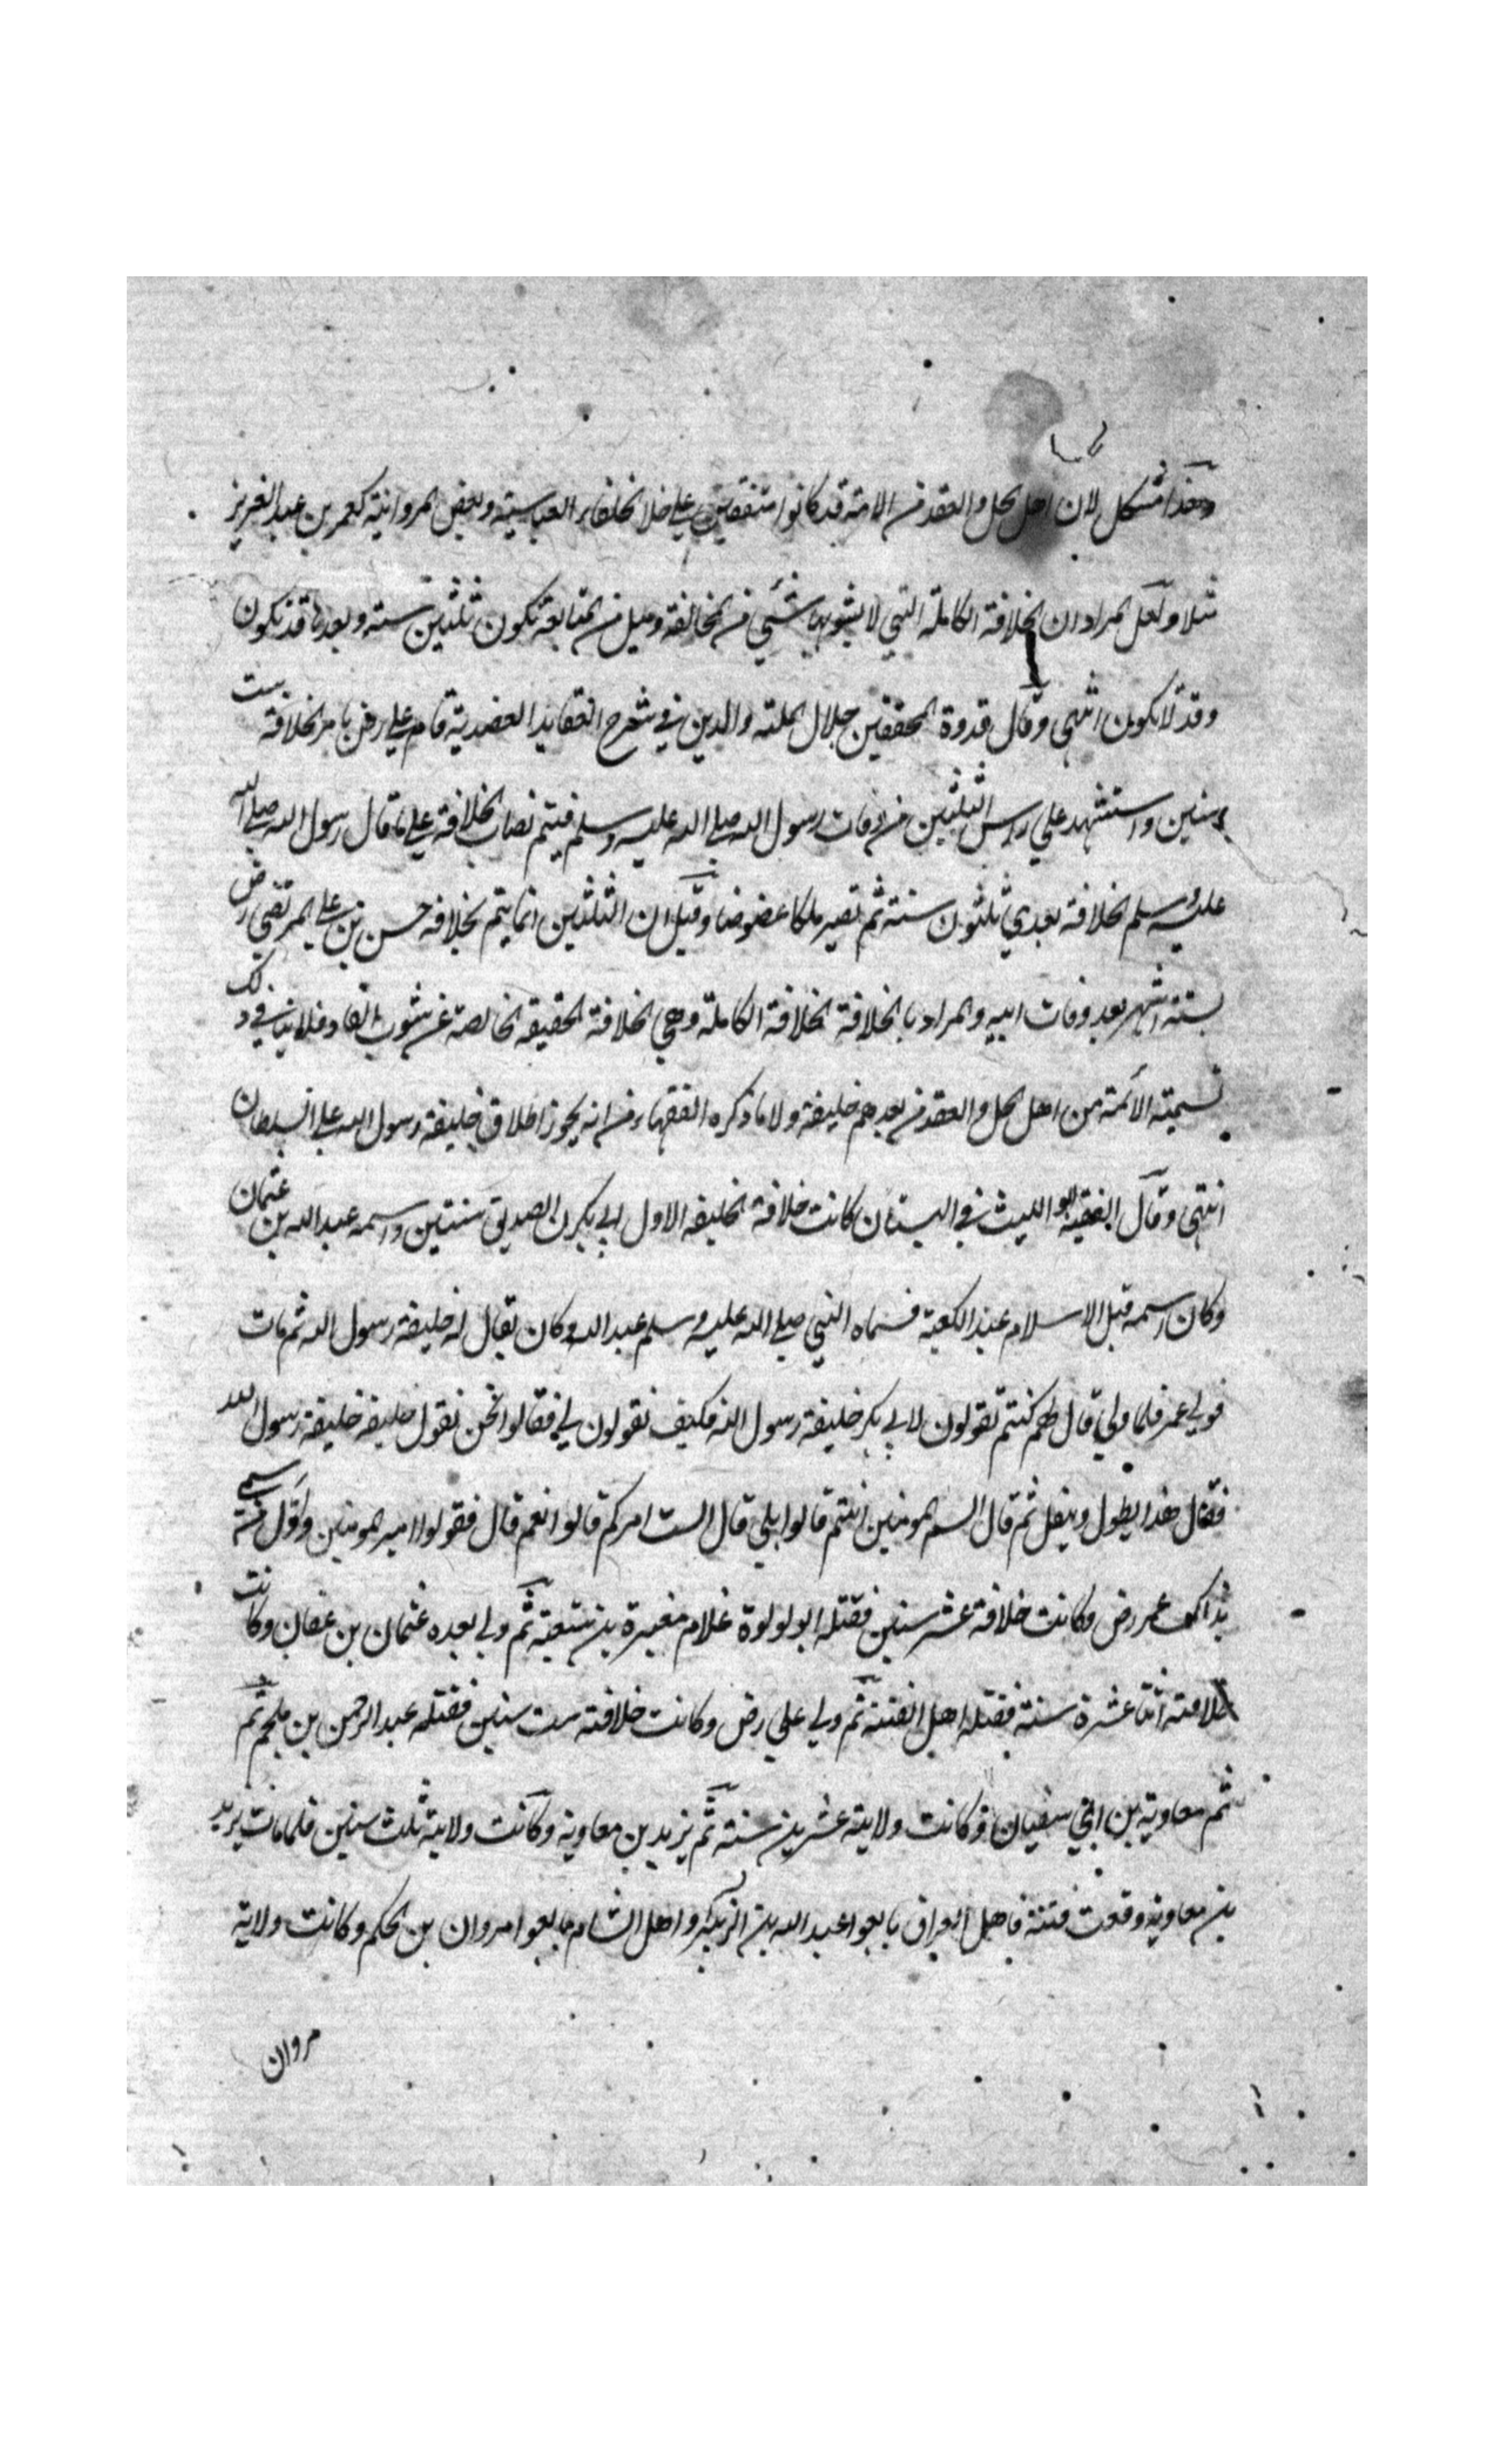 وهذا مشكل لان اهل الحل والعقد من الامة قد كانوا متفقين على خلافة الخلفاء العباسية وبعض المروانية كعمر بن عبد العزيز
مثلا ولعل المراد ان الخلافة الكاملة التي لا يشوبها شيئ من المخالفة وميل من المتابعة تكون ثلثين سنة وبعدها قد تكون
وقد لا تكون انتهى وقال قدوة المحققين جلال الملة والدين في شرح العقايد العضدية قام علي رض بامر الخلافة ست
سنين واستشهد علي رأس الثلثين من وفات رسول الله صلى الله عليه وسلم فيتم نصاب الخلافة على ما قال رسول الله صلى الله
عليه وسلم الخلافة بعدي ثلثون سنة ثم تصير ملكا عضوضا وقيل ان الثلثين انما يتم بخلافة حسن بن علي المرتضى رض
بستة اشهر بعد وفات ابيه والمراد بالخلافة الخلافة الكاملة وهي الخلافة الحقيقة الخالصة عن شوب فلا ينافي ذلك
تسمية الأئمة من اهل الحل والعقد من بعدهم خليفة ولا ما ذكره الفقهاء من انه يجوز اطلاق خليفة رسول الله على السلطان
انتهى وقال الفقيه ابو الليث في البستان كانت خلافة الخليفة الاول ابي بكرن الصديق سنتين واسمه عبد الله بن عثمان
وكان اسمه قبل الاسلام عبد الكعبة فسماه النبي صلى الله عليه وسلم عبد الله وكان يقال له خليفة رسول الله ثم مات
فولي عمر فلما ولي قال لهم كنتم تقولون لابي بكر خليفة رسول الله فكيف تقولون لي فقالوا نحن نقول خليفة خليفة رسول الله
فقال هذا يطول ويثقل ثم قال الستم المومنين انتم قالوا بلي قال الست امركم قالوا نعم قال فقولوا امير المومنين واول من سمي
بذالك عمر رض وكانت خلافة عشر سنين فقتله ابو لولوة غلام مغيرة بن شعبة ثم ولي بعده عثمان بن عفان وكانت
خلافته اثنتا عشرة سنة فقتله اهل الفتنة ثم ولي علي رض وكانت خلافته ست سنين فقتله عبد الرحمن بن ملجم ثم
ثم معاوية بن ابي سفيان وكانت ولايته عشرين سنة ثم يزيد بن معاوية وكانت ولايته ثلث سنين فلما مات يزيد
بن معاوية وقعت فتنة فاهل العراق بايعوا عبد الله بن الزبير واهل الشام بايعوا مروان بن الحكم وكانت ولاية
مروان